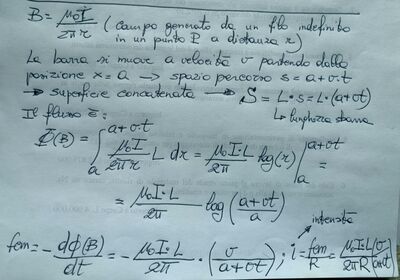 B = μ₀I / 2πr (campo generato da un filo indefinito
in un punto P a distanza r)
La barra si muove a velocità v partendo dalla
posizione x = a → spazio percorso s = a+v·t
→ superficie concatenata → S = L·s = L·(a+vt)
↳ lunghezza sbarra
Il flusso è:
Φ(B) = ∫ₐ^(a+v·t) μ₀I / 2πr · L dx = μ₀I·L / 2π log(r) |ₐ^(a+v·t) =
= μ₀I·L / 2π log((a+vt) / a)
intensità
fem = - dΦ(B) / dt = - μ₀I·L / 2π · (v / a+vt) ; i = fem / R = μ₀I·L / 2πR (v / a+vt)